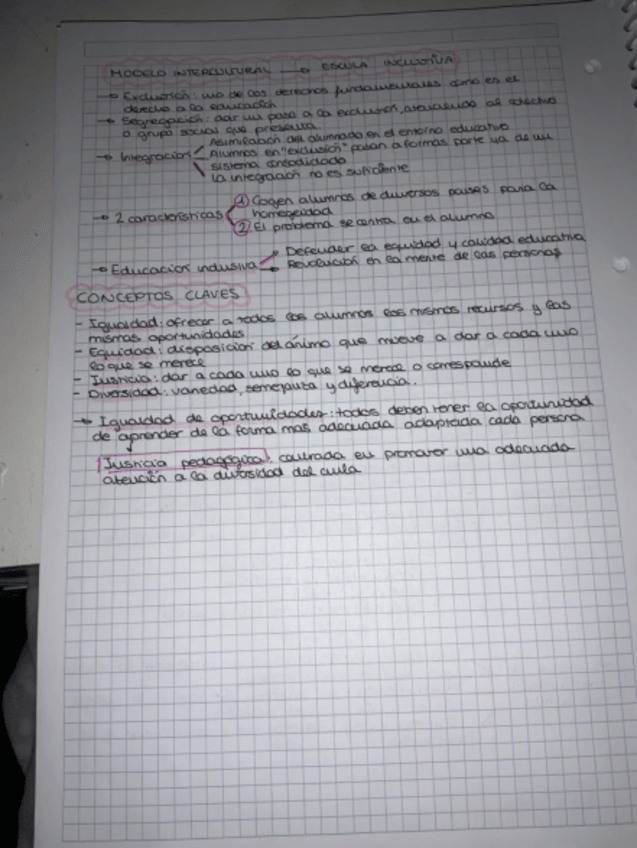 MODELO INTERCULTURAL → ESCUELA INCLUSIVA
→ Exclusión: uno de los derechos fundamentales como es el
derecho a la educación
→ Segregación: dar un paso a la exclusión, atendiendo al colectivo
o grupo social que presenta.
→ Integración Asimilación del alumnado en el entorno educativo
Alumnos en "exclusión" pasan a formar parte ya de un
sistema consolidado
La integración no es suficiente
→ 2 características ① Cogen alumnos de diversos países para la
homogeidad
② El problema se centra en el alumno
→ Educación inclusiva Defender la equidad y calidad educativa
Revolución en la mente de las personas
CONCEPTOS CLAVES
- Igualdad: ofrecer a todos los alumnos los mismos recursos y las
mismas oportunidades
- Equidad: disposición del ánimo que mueve a dar a cada uno
lo que se merece
- Justicia: dar a cada uno lo que se merece o corresponde
- Diversidad: variedad, semejanza y diferencia.
→ Igualdad de oportunidades: todos deben tener la oportunidad
de aprender de la forma mas adecuada adaptada cada persona
Justicia pedagógica: centrada en promover una adecuada
atención a la diversidad del aula